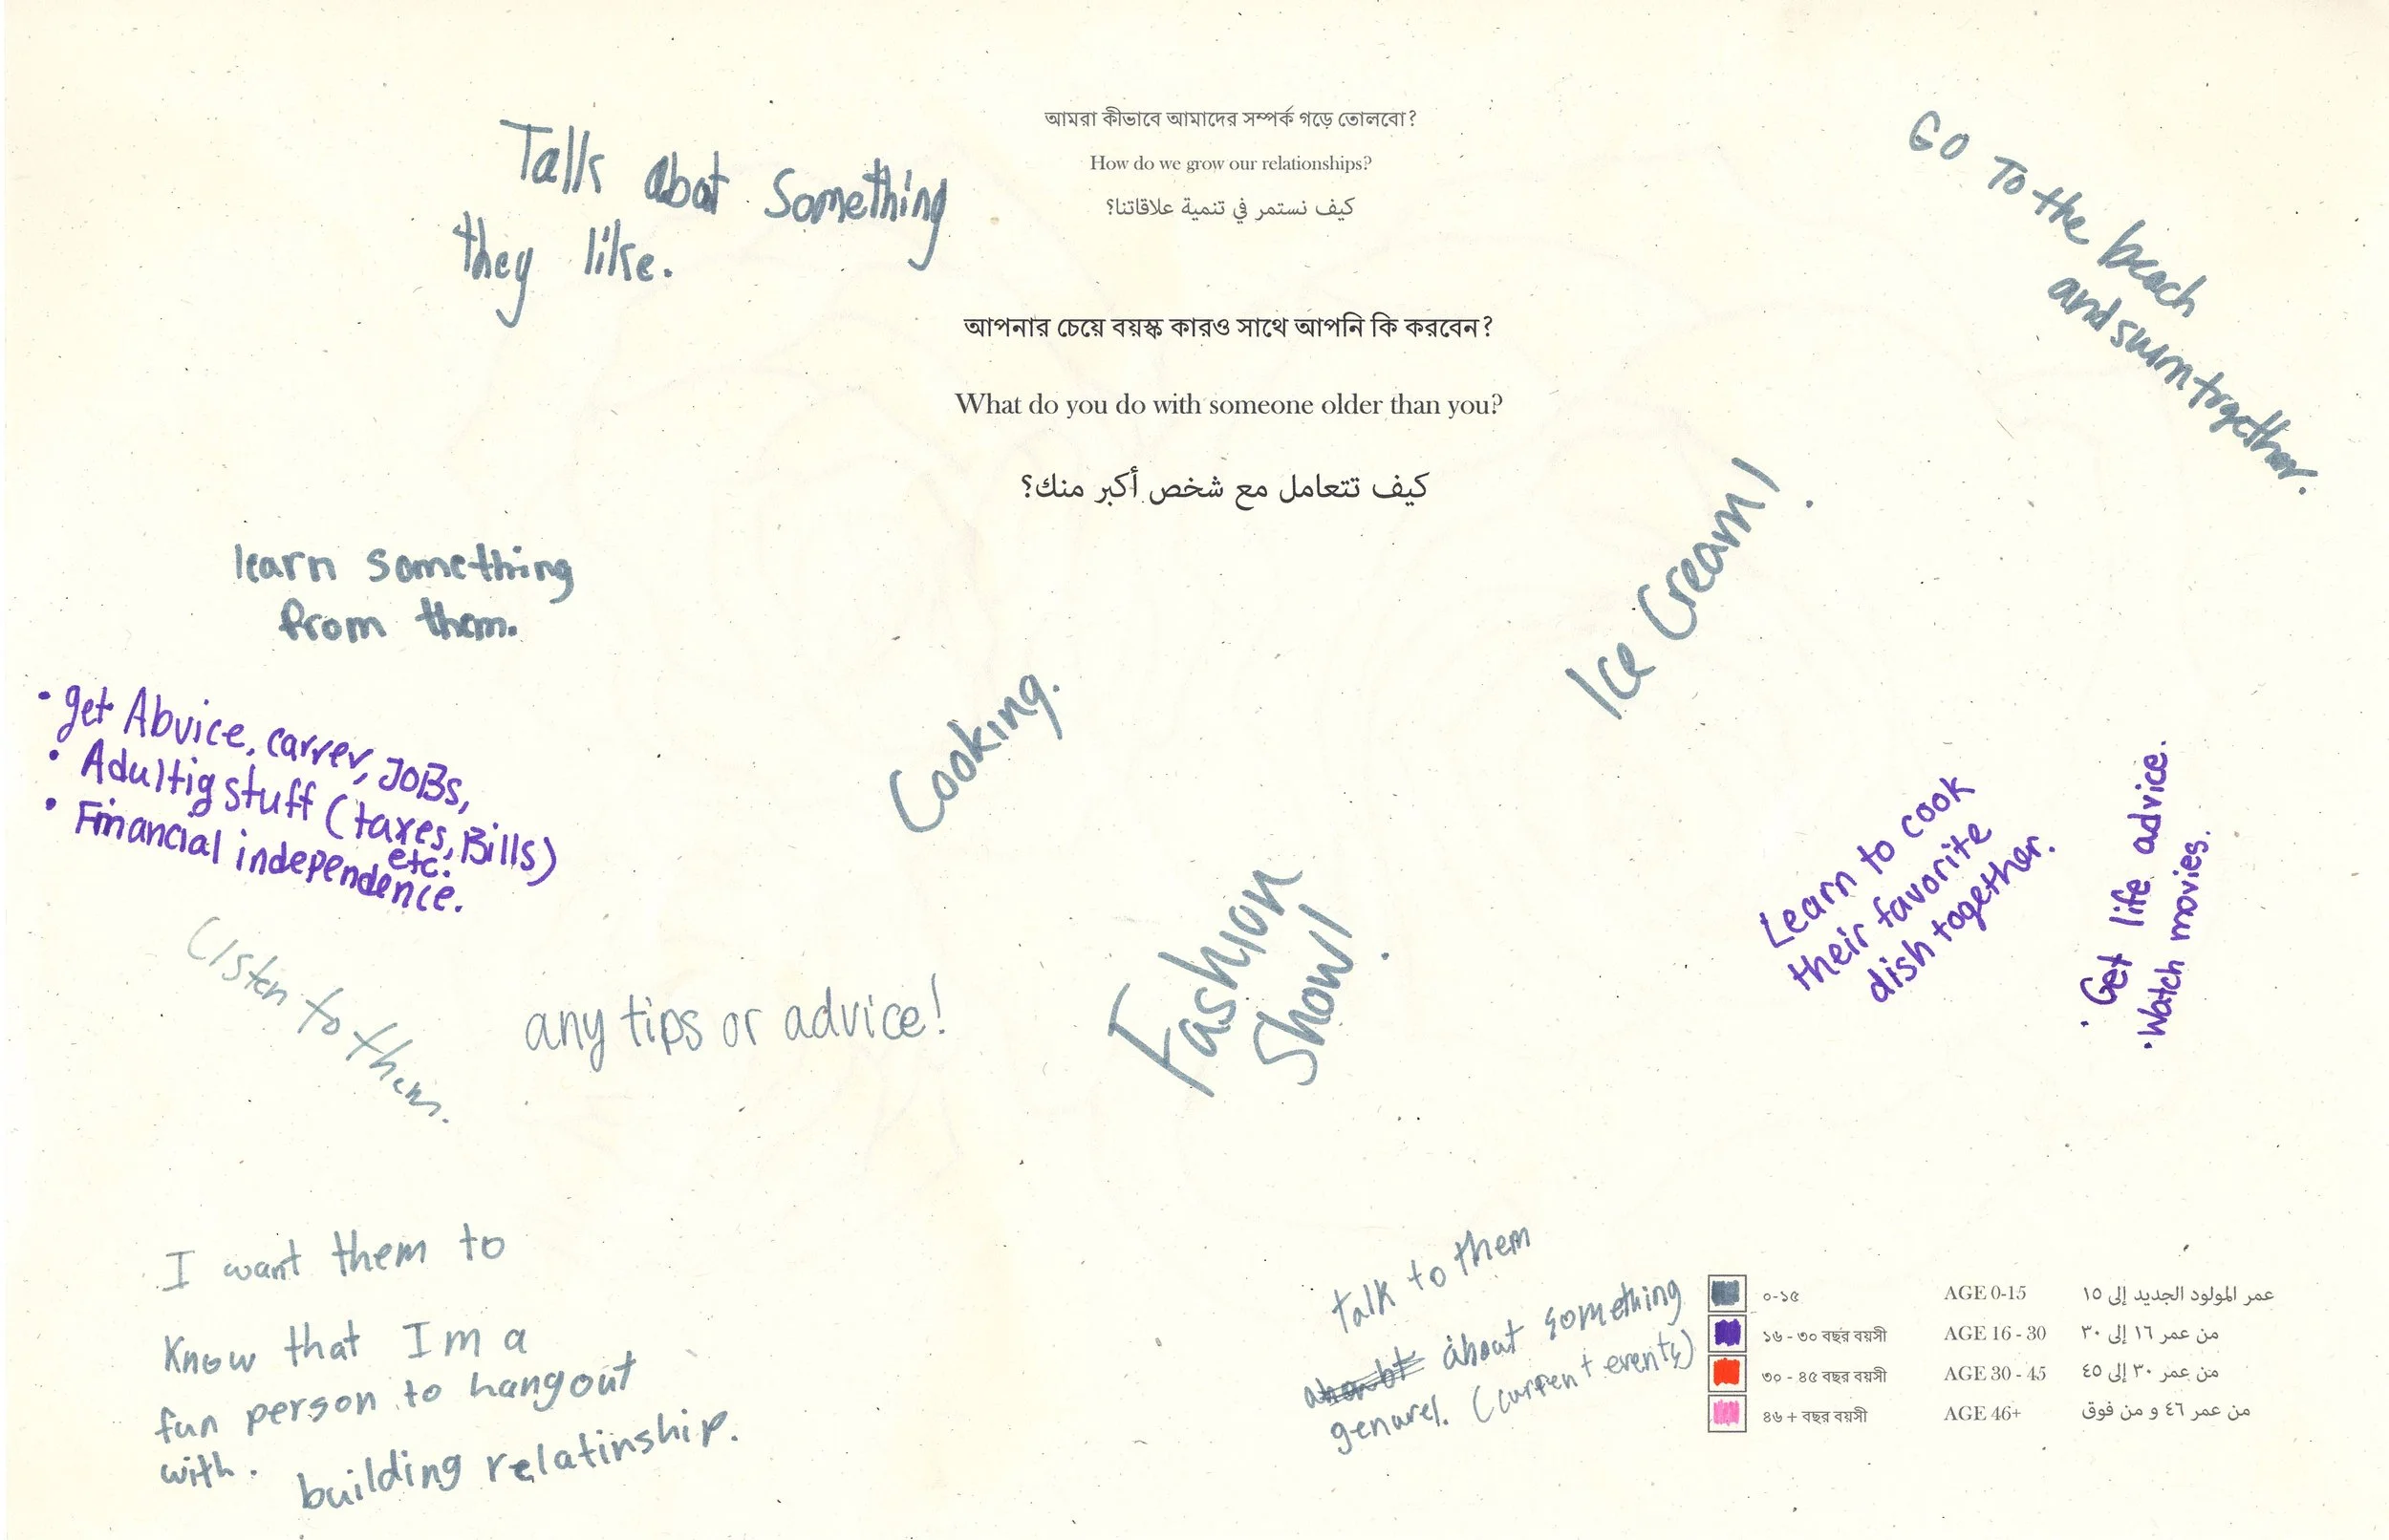 আমরা কীভাবে আমাদের সম্পর্ক গড়ে তোলবো?
How do we grow our relationships?
كيف نستمر في تنمية علاقاتنا؟
আপনার চেয়ে বয়স্ক কারও সাথে আপনি কি করবেন?
What do you do with someone older than you?
كيف تتعامل مع شخص أكبر منك؟
Talk about something
they like.
GO To the beach
and swim together.
learn something
from them.
Ice Cream!
• get Abvice, carrer, JOBs,
• Adultig stuff (taxes, Bills)
etc.
• Financial independence.
Cooking.
Learn to cook
their favorite
dish together.
• Get life advice.
• Watch movies.
Listen to them.
any tips or advice!
Fashion
Show!
I want them to
Know that Im a
fun person to hangout
with.
building relatinship.
talk to them
about something
genarel. (current events)
০-১৫ AGE 0-15 عمر المولود الجديد إلى ١٥
১৬ - ৩০ বছর বয়সী AGE 16 - 30 من عمر ١٦ إلى ٣٠
৩০ - ৪৫ বছর বয়সী AGE 30 - 45 من عمر ٣٠ إلى ٤٥
৪৬ + বছর বয়সী AGE 46+ من عمر ٤٦ و من فوق